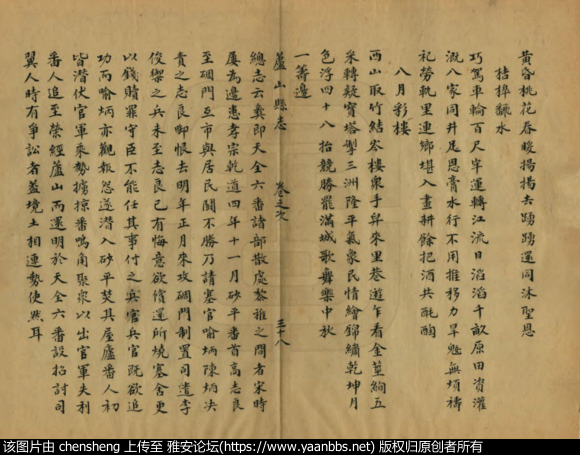 黃昏桃花春暖揚揚去踴踴還同沐聖恩
桔槔龝水
巧駕車輪百尺牢運轉江流日滔滔千畝原田資灌
溉八家同井足恩膏水行不用推移力旱魃無煩禱
祀勞軌里連鄉堪入畫耕餘把酒共酕醄
八月彩樓
西山取竹結岑樓眾手舁來里巷遊乍看金莖絢五
采轉疑寶塔掣三洲隆平氣象民情繪錦繡乾坤月
色浮四十八抬競勝罷滿城歌舞樂中秋
一籌邊
蘆山縣志
卷之次
三十八
總志云夷即天全六番諸部散處黎雅之間者宋時
屢為邊患孝宗乾道四年十一月砂平番首高志良
至碉門互市與居民鬪不勝乃請塞官喻炳陳炳決
責之志良啣恨去明年正月來攻碉門制置司遣李
俊禦之兵未至志良已有悔意欲償還所燒塞舍更
以錢贖罪守臣不能任其事付之兵官兵官既欲追
功而喻炳亦觀報怨遂潛入砂平焚其屋廬番人初
皆潛伏官軍來勢擄掠番鳴角聚眾以出官軍失利
番人追至榮經蘆山而還明於天全六番設招討司
翼人時有爭訟者蓋境土相連勢使然耳
该图片由 chensheng 上传至 雅安论坛(https://www.yaanbbs.net) 版权归原创者所有